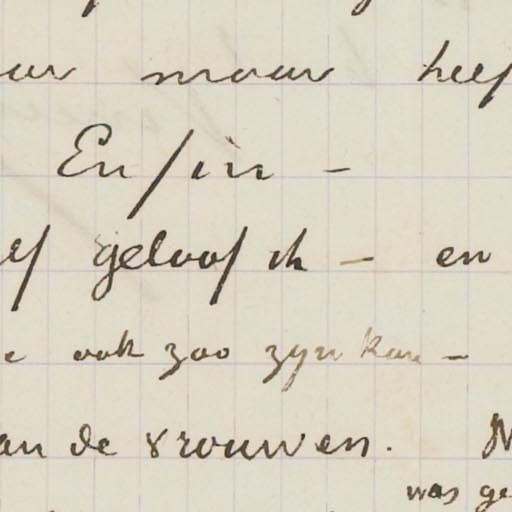 maar heef
Enfin -
geloof ik - en
ook zoo zyn kan -
an de vrouwen. N
was ge